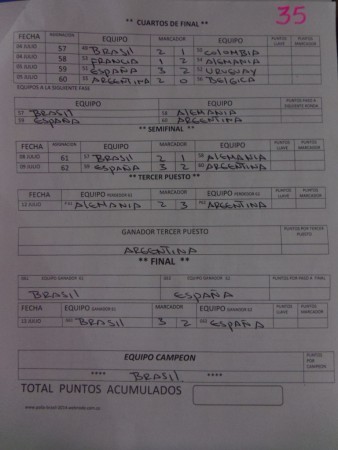 35
** CUARTOS DE FINAL **
FECHA EQUIPO MARCADOR EQUIPO PUNTOS LLAVE PUNTOS MARCADOR
04 JULIO 57 BRASIL 2 1 COLOMBIA
04 JULIO 58 FRANCIA 1 2 ALEMANIA
05 JULIO 59 ESPAÑA 3 2 URUGUAY
05 JULIO 60 ARGENTINA 2 0 BELGICA
EQUIPOS A LA SIGUIENTE FASE
57 BRASIL 58 ALEMANIA
59 ESPAÑA 60 ARGENTINA
** SEMIFINAL **
FECHA EQUIPO MARCADOR EQUIPO PUNTOS LLAVE PUNTOS MARCADOR
08 JULIO 61 57 BRASIL 2 1 58 ALEMANIA
09 JULIO 62 59 ESPAÑA 3 2 60 ARGENTINA
** TERCER PUESTO **
FECHA EQUIPO MARCADOR EQUIPO PUNTOS LLAVE PUNTOS MARCADOR
12 JULIO ALEMANIA 2 3 ARGENTINA
GANADOR TERCER PUESTO PUNTOS POR TERCER PUESTO
ARGENTINA
** FINAL **
EQUIPO GANADOR EQUIPO GANADOR PUNTOS POR PASO A FINAL
BRASIL ESPAÑA
FECHA EQUIPO MARCADOR EQUIPO PUNTOS LLAVE PUNTOS MARCADOR
13 JULIO BRASIL 3 2 ESPAÑA
EQUIPO CAMPEON PUNTOS POR CAMPEON
**** BRASIL ****
TOTAL PUNTOS ACUMULADOS